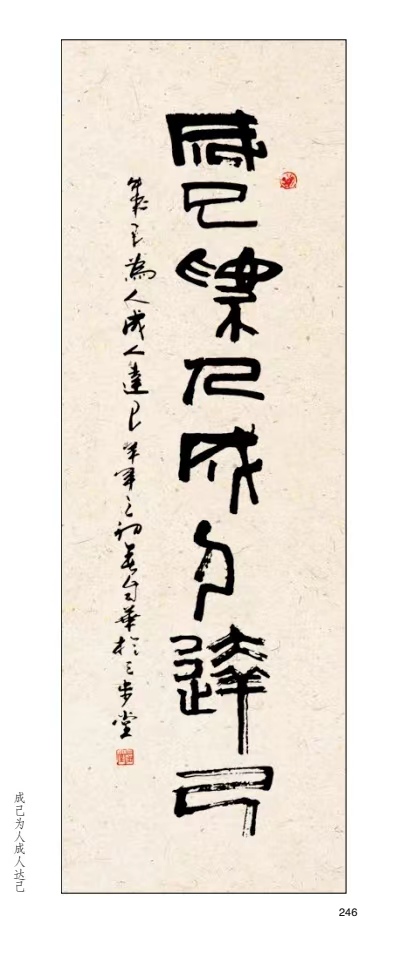 成己為人成人達己
成己為人成人達己
之初春自華於三步堂
成己为人成人达己
246